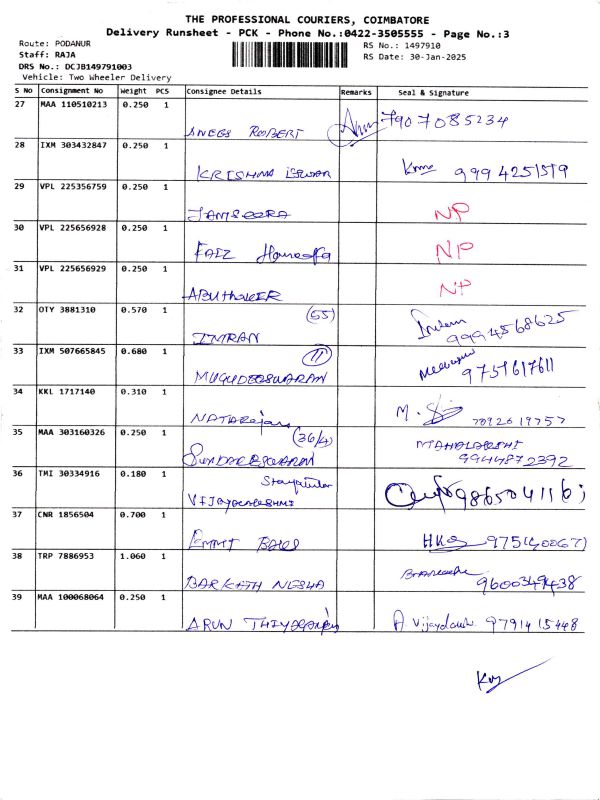 THE PROFESSIONAL COURIERS, COIMBATORE
Delivery Runsheet - PCK - Phone No.:0422-3505555 - Page No.:3
Route: PODANUR
RS No.: 1497910
Staff: RAJA
RS Date: 30-Jan-2025
DRS No.: DCJB149791003
Vehicle: Two Wheeler Delivery
S No Consignment No Weight PCS Consignee Details Remarks Seal & Signature
27 MAA 110510213 0.250 1
ROBERT 7907085234
28 IXM 303432847 0.250 1
KRISHNA 9994251519
29 VPL 225356759 0.250 1
JAMSEERA NP
30 VPL 225656928 0.250 1
FAIZ Haneefa NP
31 VPL 225656929 0.250 1
ABUthaKEER NP
32 OTY 3881310 0.570 1 (55)
IMRAN 9994568625
33 IXM 507665845 0.680 1 11
MUGUDEESWARAN 9751617611
34 KKL 1717140 0.310 1
NATARajan M. 7092619757
35 MAA 303160326 0.250 1 (36/4) MAHALAKSHMI
SUNDARESWARAN 9944872392
36 TMI 30334916 0.180 1
VIJAYALAKSHMI
37 CNR 1856504 0.700 1
38 TRP 7886953 1.060 1
BARKATH NESHA 9600349438
39 MAA 100068064 0.250 1
ARUN THIYAGARAJ A. 9791415448